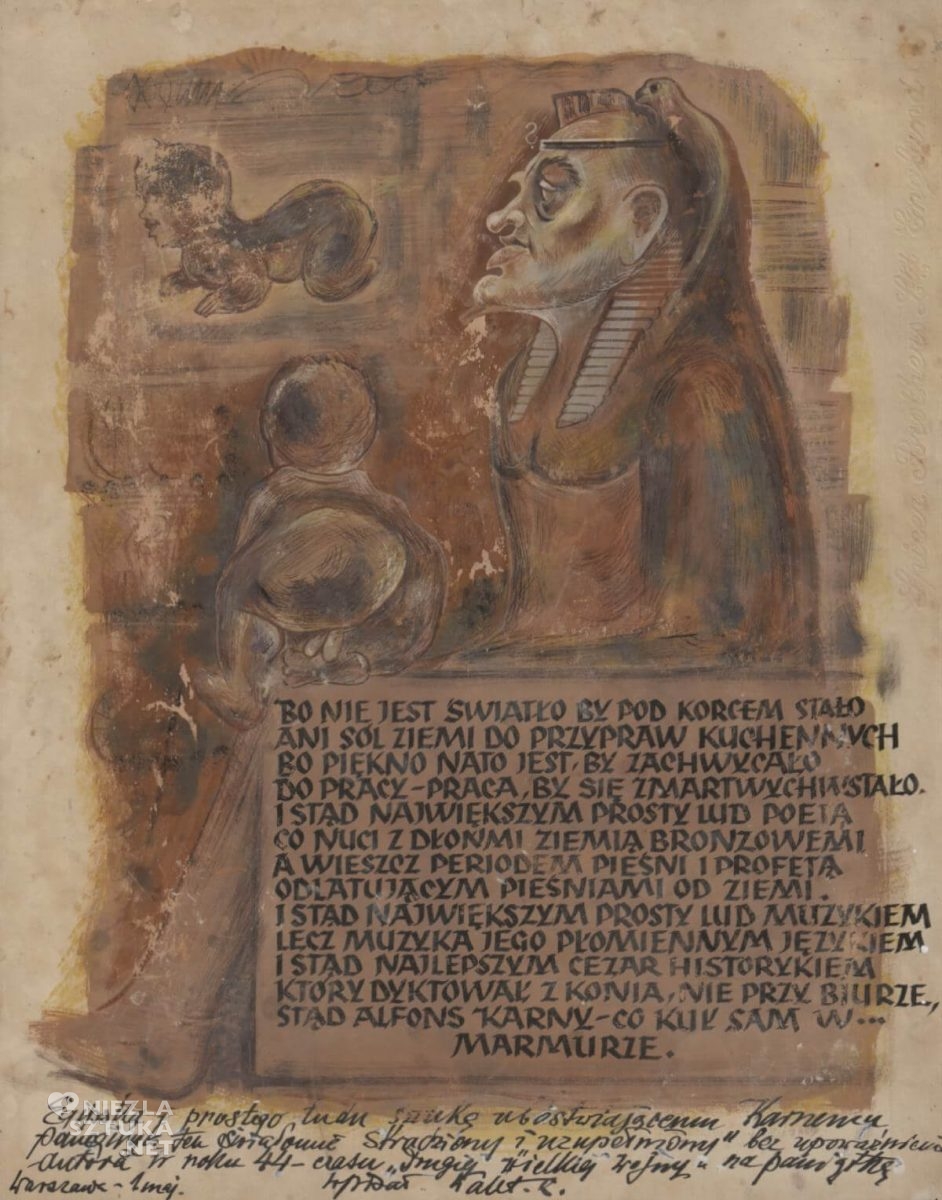 BO NIE JEST ŚWIATŁO BY POD KORCEM STAŁO
ANI SÓL ZIEMI DO PRZYPRAW KUCHENNYCH
BO PIĘKNO NATO JEST, BY ZACHWYCAŁO
DO PRACY-PRACA, BY SIĘ ZMARTWYCHWSTAŁO.
I STĄD NAJWIĘKSZYM PROSTY LUD POETĄ
CO NUCI Z DŁOŃMI ZIEMIĄ BRONZOWEMI
A WIESZCZ PERIODEM PIEŚNI I PROFETĄ
ODLATUJĄCYM PIEŚNIAMI OD ZIEMI.
I STĄD NAJWIĘKSZYM PROSTY LUD MUZYKIEM
LECZ MUZYKA JEGO PŁOMIENNYM JĘZYKIEM
I STĄD NAJLEPSZYM CEZAR HISTORYKIEM
KTÓRY DYKTOWAŁ Z KONIA, NIE PRZY BIURZE,
STĄD ALFONS KARNY-CO KUŁ SAM W...
MARMURZE.
prostego ludu sztukę ubóstwiającemu Karnemu
ten świadomie "Stradziony i uzupełniony" bez upoważnienia
autora w roku 44-czasu "drugiej wielkiej wojny" na pamiątkę
Warszawa-1 maj.
NIEZŁA
SZTUKA
.NET